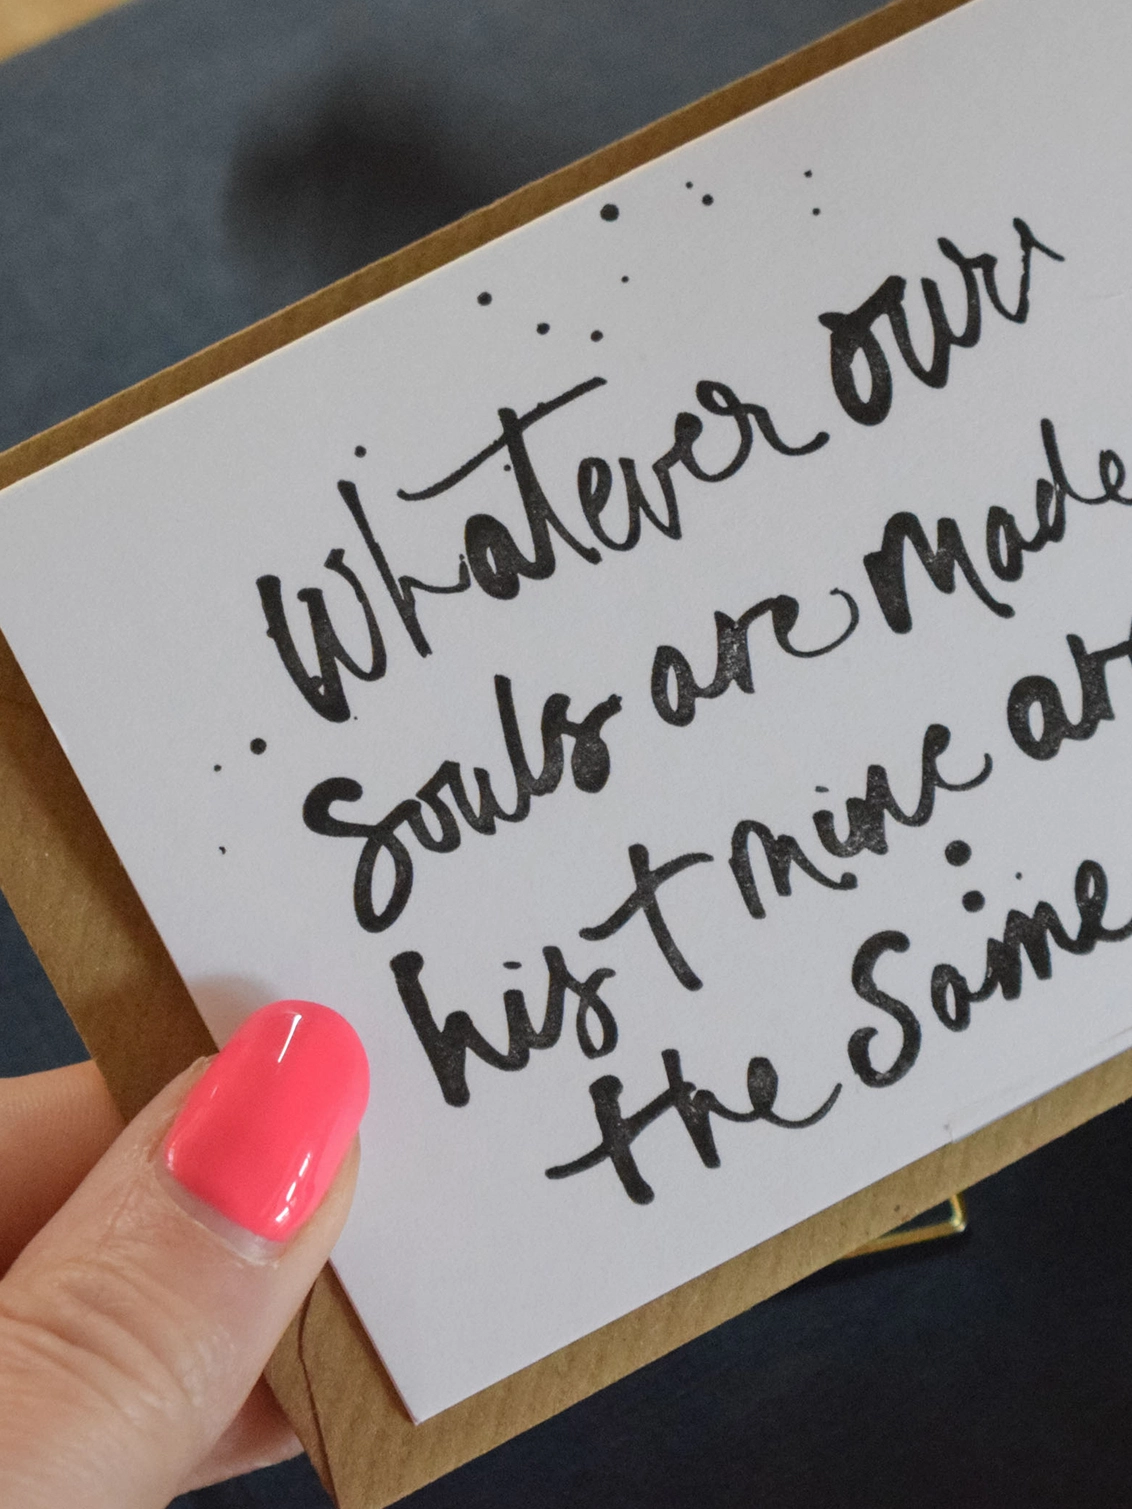 Whatever our
Souls are made
his + mine are
the Same